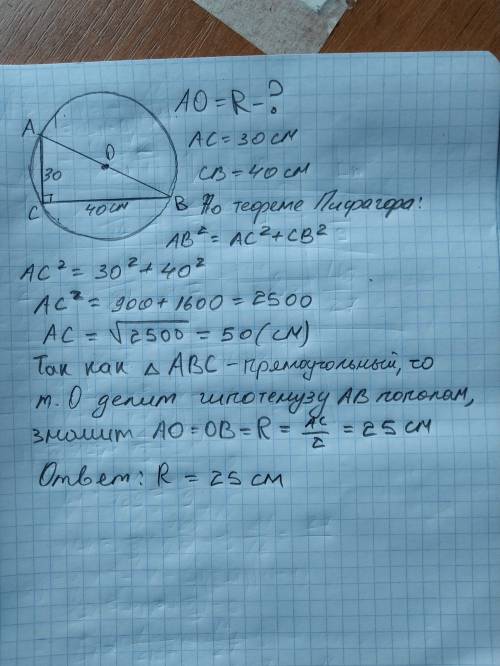 AO = R - ?
AC = 30 см
CB = 40 см
По теореме Пифагора:
AB² = AC² + CB²
A
O
30
C
40 см
B
AC² = 30² + 40²
AC² = 900 + 1600 = 2500
AC = √2500 = 50 (см)
Так как △ ABC - прямоугольный, то
т. O делит гипотенузу AB пополам,
значит AO = OB = R = AC/2 = 25 см
Ответ: R = 25 см